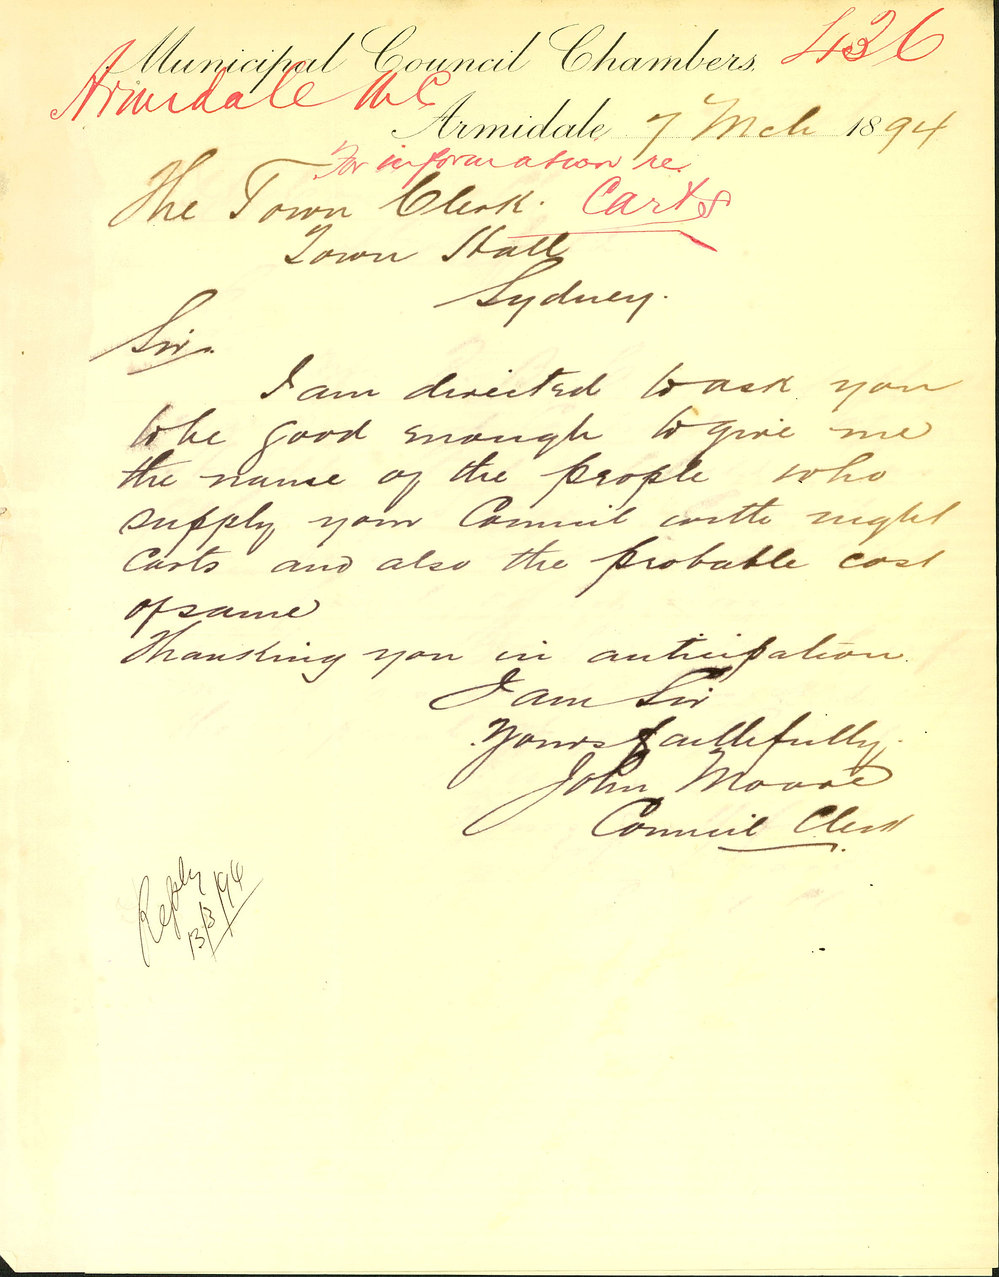 Municipal Council Chambers. 426
Armidale M C
Armidale 7 Mch 1894
For information re.
Carts
The Town Clerk.
Town Hall
Sydney.
Sir.
I am directed to ask you
to be good enough to give me
the name of the people who
supply your Council with night
carts and also the probable cost
of same
Thanking you in anticipation.
I am Sir
Yours faithfully.
John Moore
Council Clerk
Reply
13/3/94